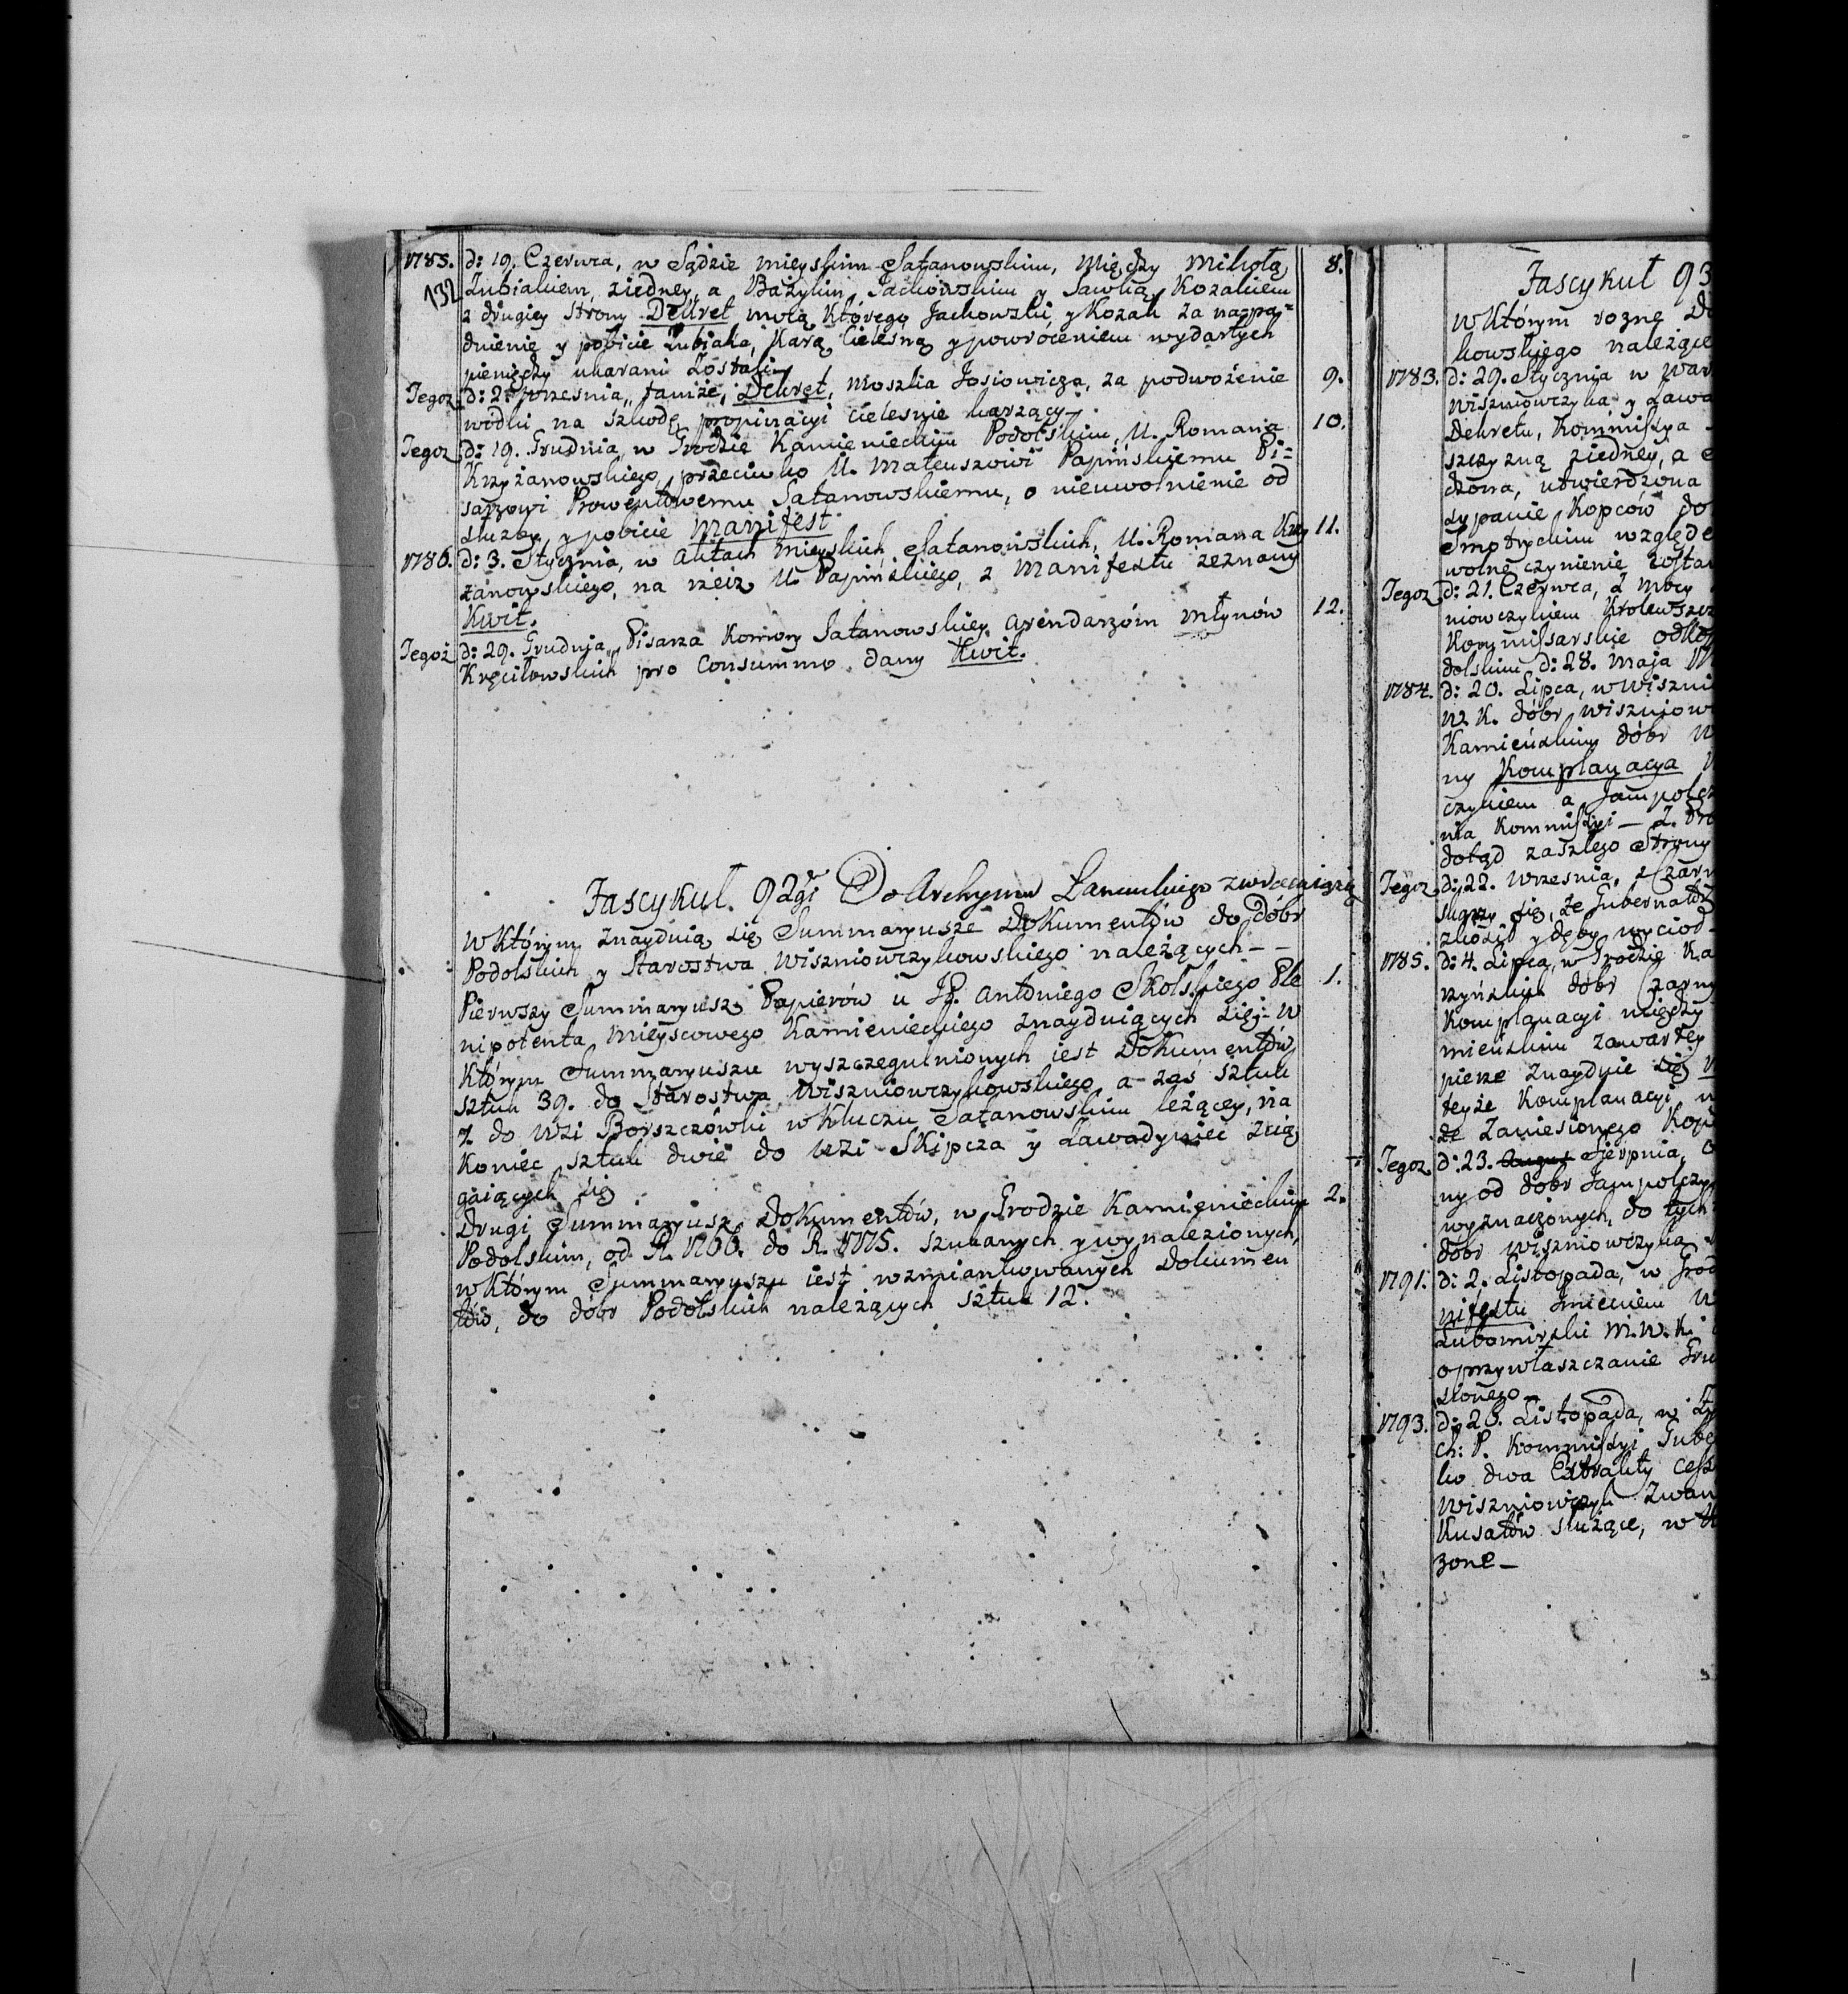 1785. d: 19. Czerwca, w Sądzie mieyskim Satanowskim, między Mikołą 8.
132 Zubiakiem, ziedney, a Bazylim Jachowskim y Sawką Kozakiem
z drugiey Strony Dekret mocą którego Jachowski y Kozak za napa=
dnienie y pobicie Zubiaka, Karą Cielesną y powróceniem wydartych
pieniędzy ukarani Zostali
Tegoż d: 2. Wrzesnia, tamże, Dekret, Moszka Josiowicza, za podwożenie 9.
wodki na szkodę propinacyi cielesnie karzący
Tegoż d: 19. Grudnia, w Grodzie Kamienieckim Podolskim, U. Romana 10.
Krzyżanowskiego, przeciwko U. Mateuszowi Papińskiemu Pi=
sarzowi Prowentowemu Satanowskiemu, o nieuwolnienie od
służby, y pobicie Manifest
1786. d: 3. Stycznia, w Aktach Mieyskich Satanowskich, U. Romana Krzy 11.
żanowskiego, na rzecz U. Papińskiego, z Manifestu zeznany
Kwit.
Tegoż d: 29. Grudnia, Pisarza Komory Satanowskiey arendarzóm młynów 12.
Kręciłowskich pro Consummo dany Kwit.
Fascykuł. 92gi Do Archywu Lancuckiego zwracaiący
w którym znayduią się Summaryusze Dokumentów do dóbr
Podolskich y Starostwa Wiszniowczykowskiego należących - -
Pierwszy Summaryusz Papierów u JP. Antoniego Skolskiego Ple 1.
nipotenta Mieyscowego Kamienieckiego znayduiących się: w
którym Summaryuszu wyszczegulnionych jest Dokumentów
sztuk 39. do Starostwa Wiszniowczykowskiego a zaś sztuk
7. do wsi Borszczówki w Kluczu Satanowskim leżącey, na
Koniec sztuk dwie do wsi Skipcza y Zawadyniec ścią
gaiących się
Drugi Summaryusz Dokumentów, w Grodzie Kamienieckim 2.
Podolskim, od R. 1766. do R. 1775. szukanych y wynalezionych,
w którym Summaryuszu jest wzmiankowanych Dokumen
tów, do dóbr Podolskich należących sztuk 12.
Fascykuł 93
w którym rozne
kowskiego należące
1783. d: 29. Stycznia w War
Wiszniowczyka, y Zawa
Dekretu, Kommissya
szczyzną ziedney, a
dzona, utwierdzona
sypanie Kopców do
Smotryckim względe
wolne czynienie zosta
Tegoż d: 21. Czerwca, z Mocy
niowczykiem Krolewszcz
Kommissarskie odko
dolskim d: 28. Maja
1784. d: 20. Lipca, w Wiszni
W. K. dóbr Wiszniow
Kamieńskim dóbr W
ny Komplanacya
czykiem a Jampolcz
nia Kommissyi - Z
dotąd zaszłego Strony
Tegoż d: 22. Wrzesnia, z Czarn
skarży się, że Gubernato
zkosił y dęby wyciod
1785. d: 4. Lipca, w Grodzie Ka
rzyńskich dóbr Czarn
Komplanacyi między
mieńskim zawartey
pierze znaydzie się
teyże Komplanacyi
że Zaniesionego
Tegoż d: 23. Sierpnia,
ny od dóbr Jampolczy
wyznaczonych, do tych
dóbr Wiszniowczyka
1791. d: 2. Listopada, w Grod
nifestu Imieniem
Lubomirski M. W. K.
o przywłaszczanie Gru
słonego
1793. d: 26. Listopada, w
ch: P. Kommissyi Gube
ko dwa Extrakty
Wiszniowczyk Zwan
Kusałów służące, w
zone -